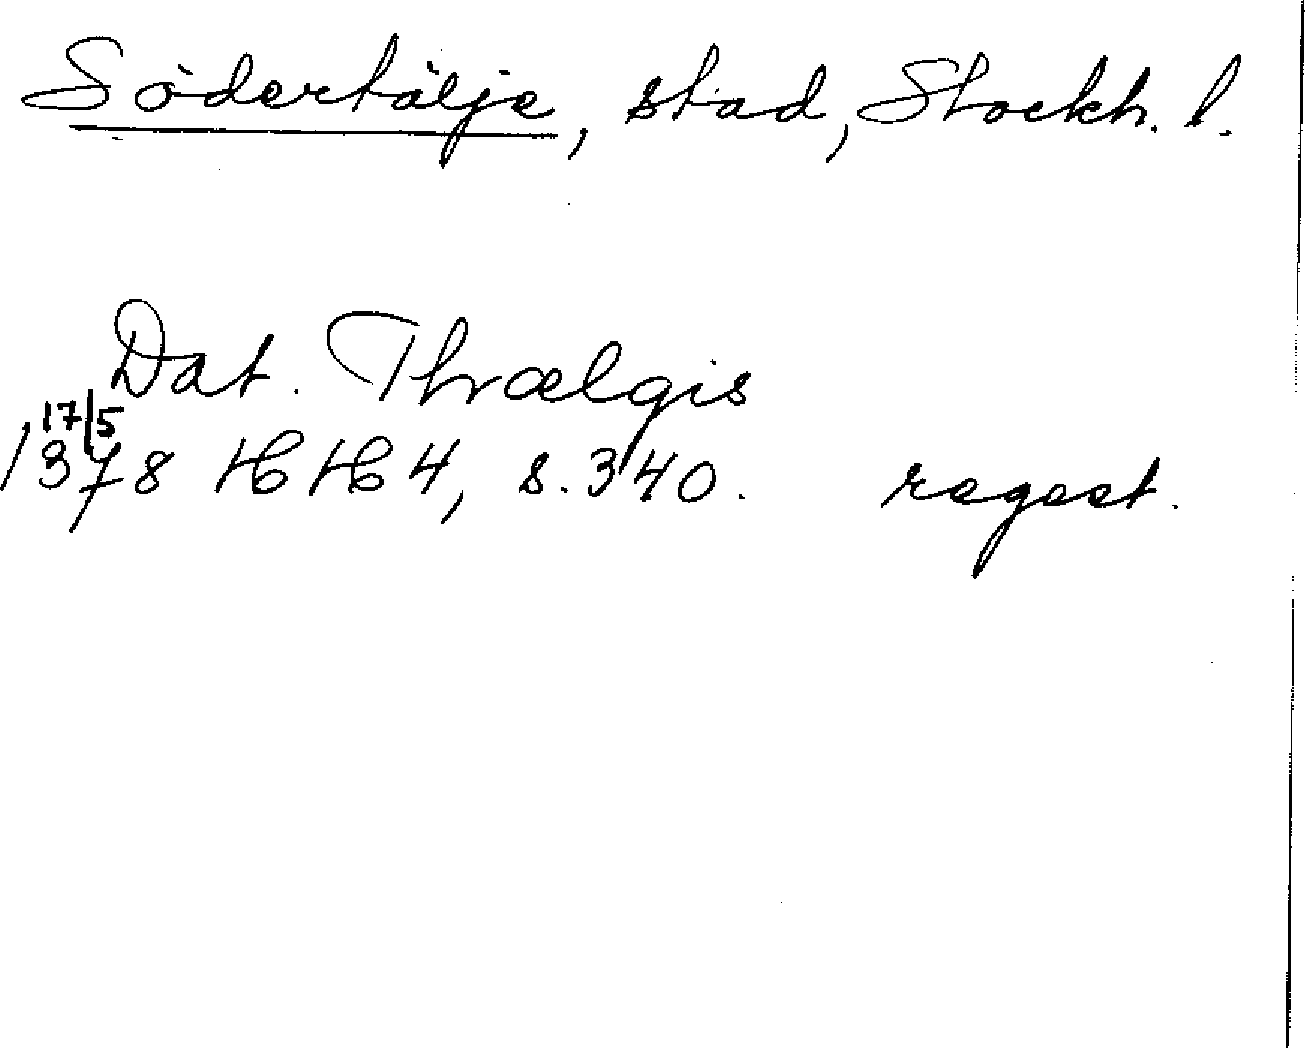 Södertälje, stad, Stockh. l.
Dat. Thrælgis
17/5
1378 HH 4, s. 340. regest.